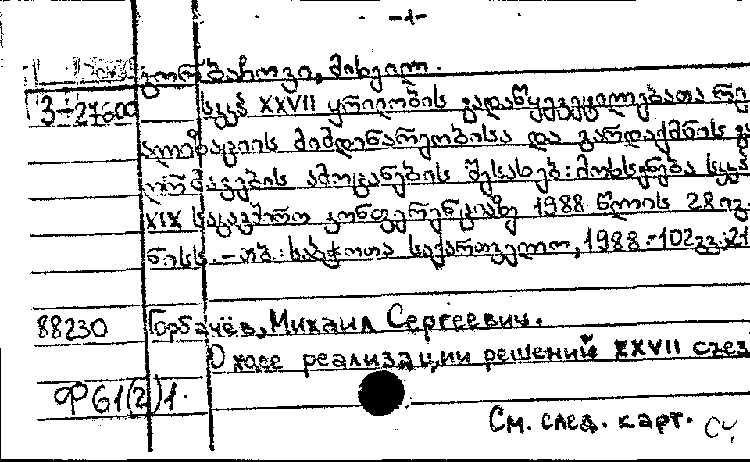 -1-
გორბაჩოვი, მიხეილ.
3-27600 სკკპ XXVII ყრილობის გადაწყვეტილებათა რე
ალიზაციის მიმდინარეობისა და გარდაქმნის გა
ღრმავების ამოცანების შესახებ: მოხსენება სკკპ
XIX საკავშირო კონფერენციაზე 1988 წლის 28 ივ-
ნისს. - თბ.: საბჭოთა საქართველო, 1988.-102გვ.;21
88230 Горбачёв, Михаил Сергеевич.
О ходе реализации решений XXVII съез
Ф61(2)1.
См. след. карт.